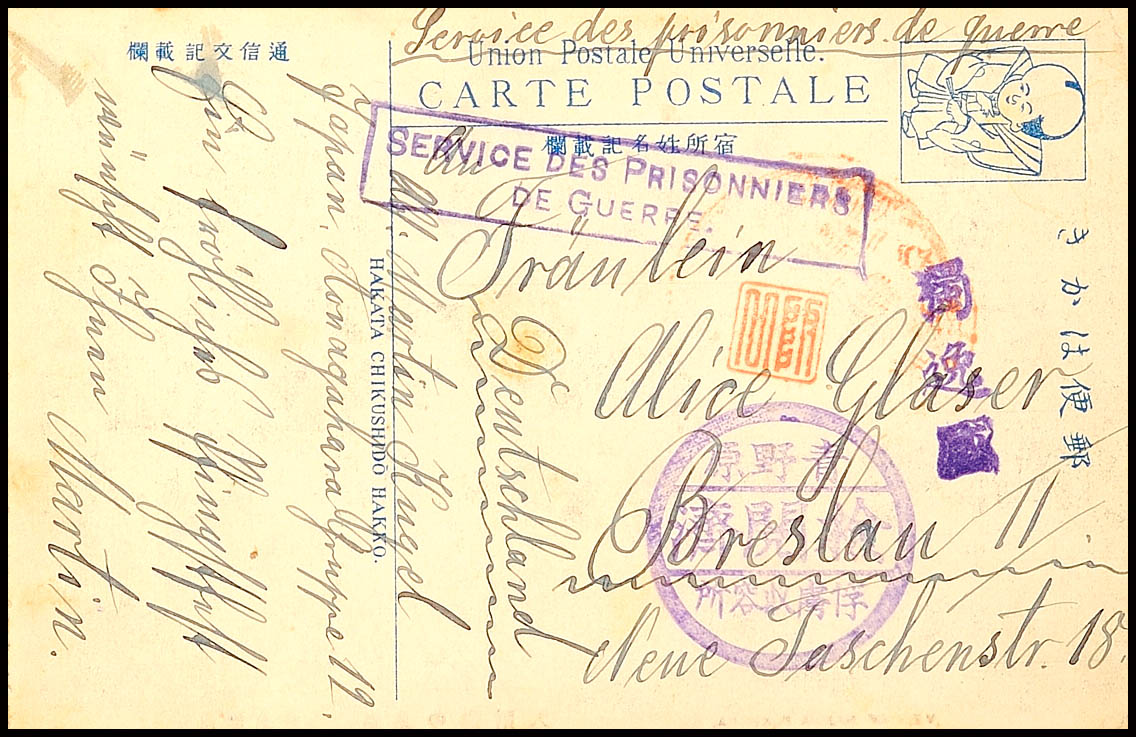 Service des prisonniers de guerre
Union Postale Universelle.
CARTE POSTALE
宿所姓名記載欄
郵便はかき
SERVICE DES PRISONNIERS
DE GUERRE.
An
Fräulein
Alice Gläser
Breslau II
Neue Taschenstr. 18.
Deutschland
獨逸
青野原
檢閲濟
俘虜收容所
通信文記載欄
HAKATA CHIKUSHIDŌ HAKKO.
Martin
Japan, Aonogahara Gruppe 12.
Ein fröhliches Pfingstfest
wünscht Ihnen
Martin.